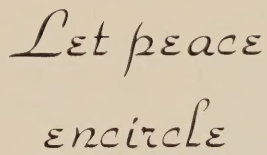 Let peace
encircle